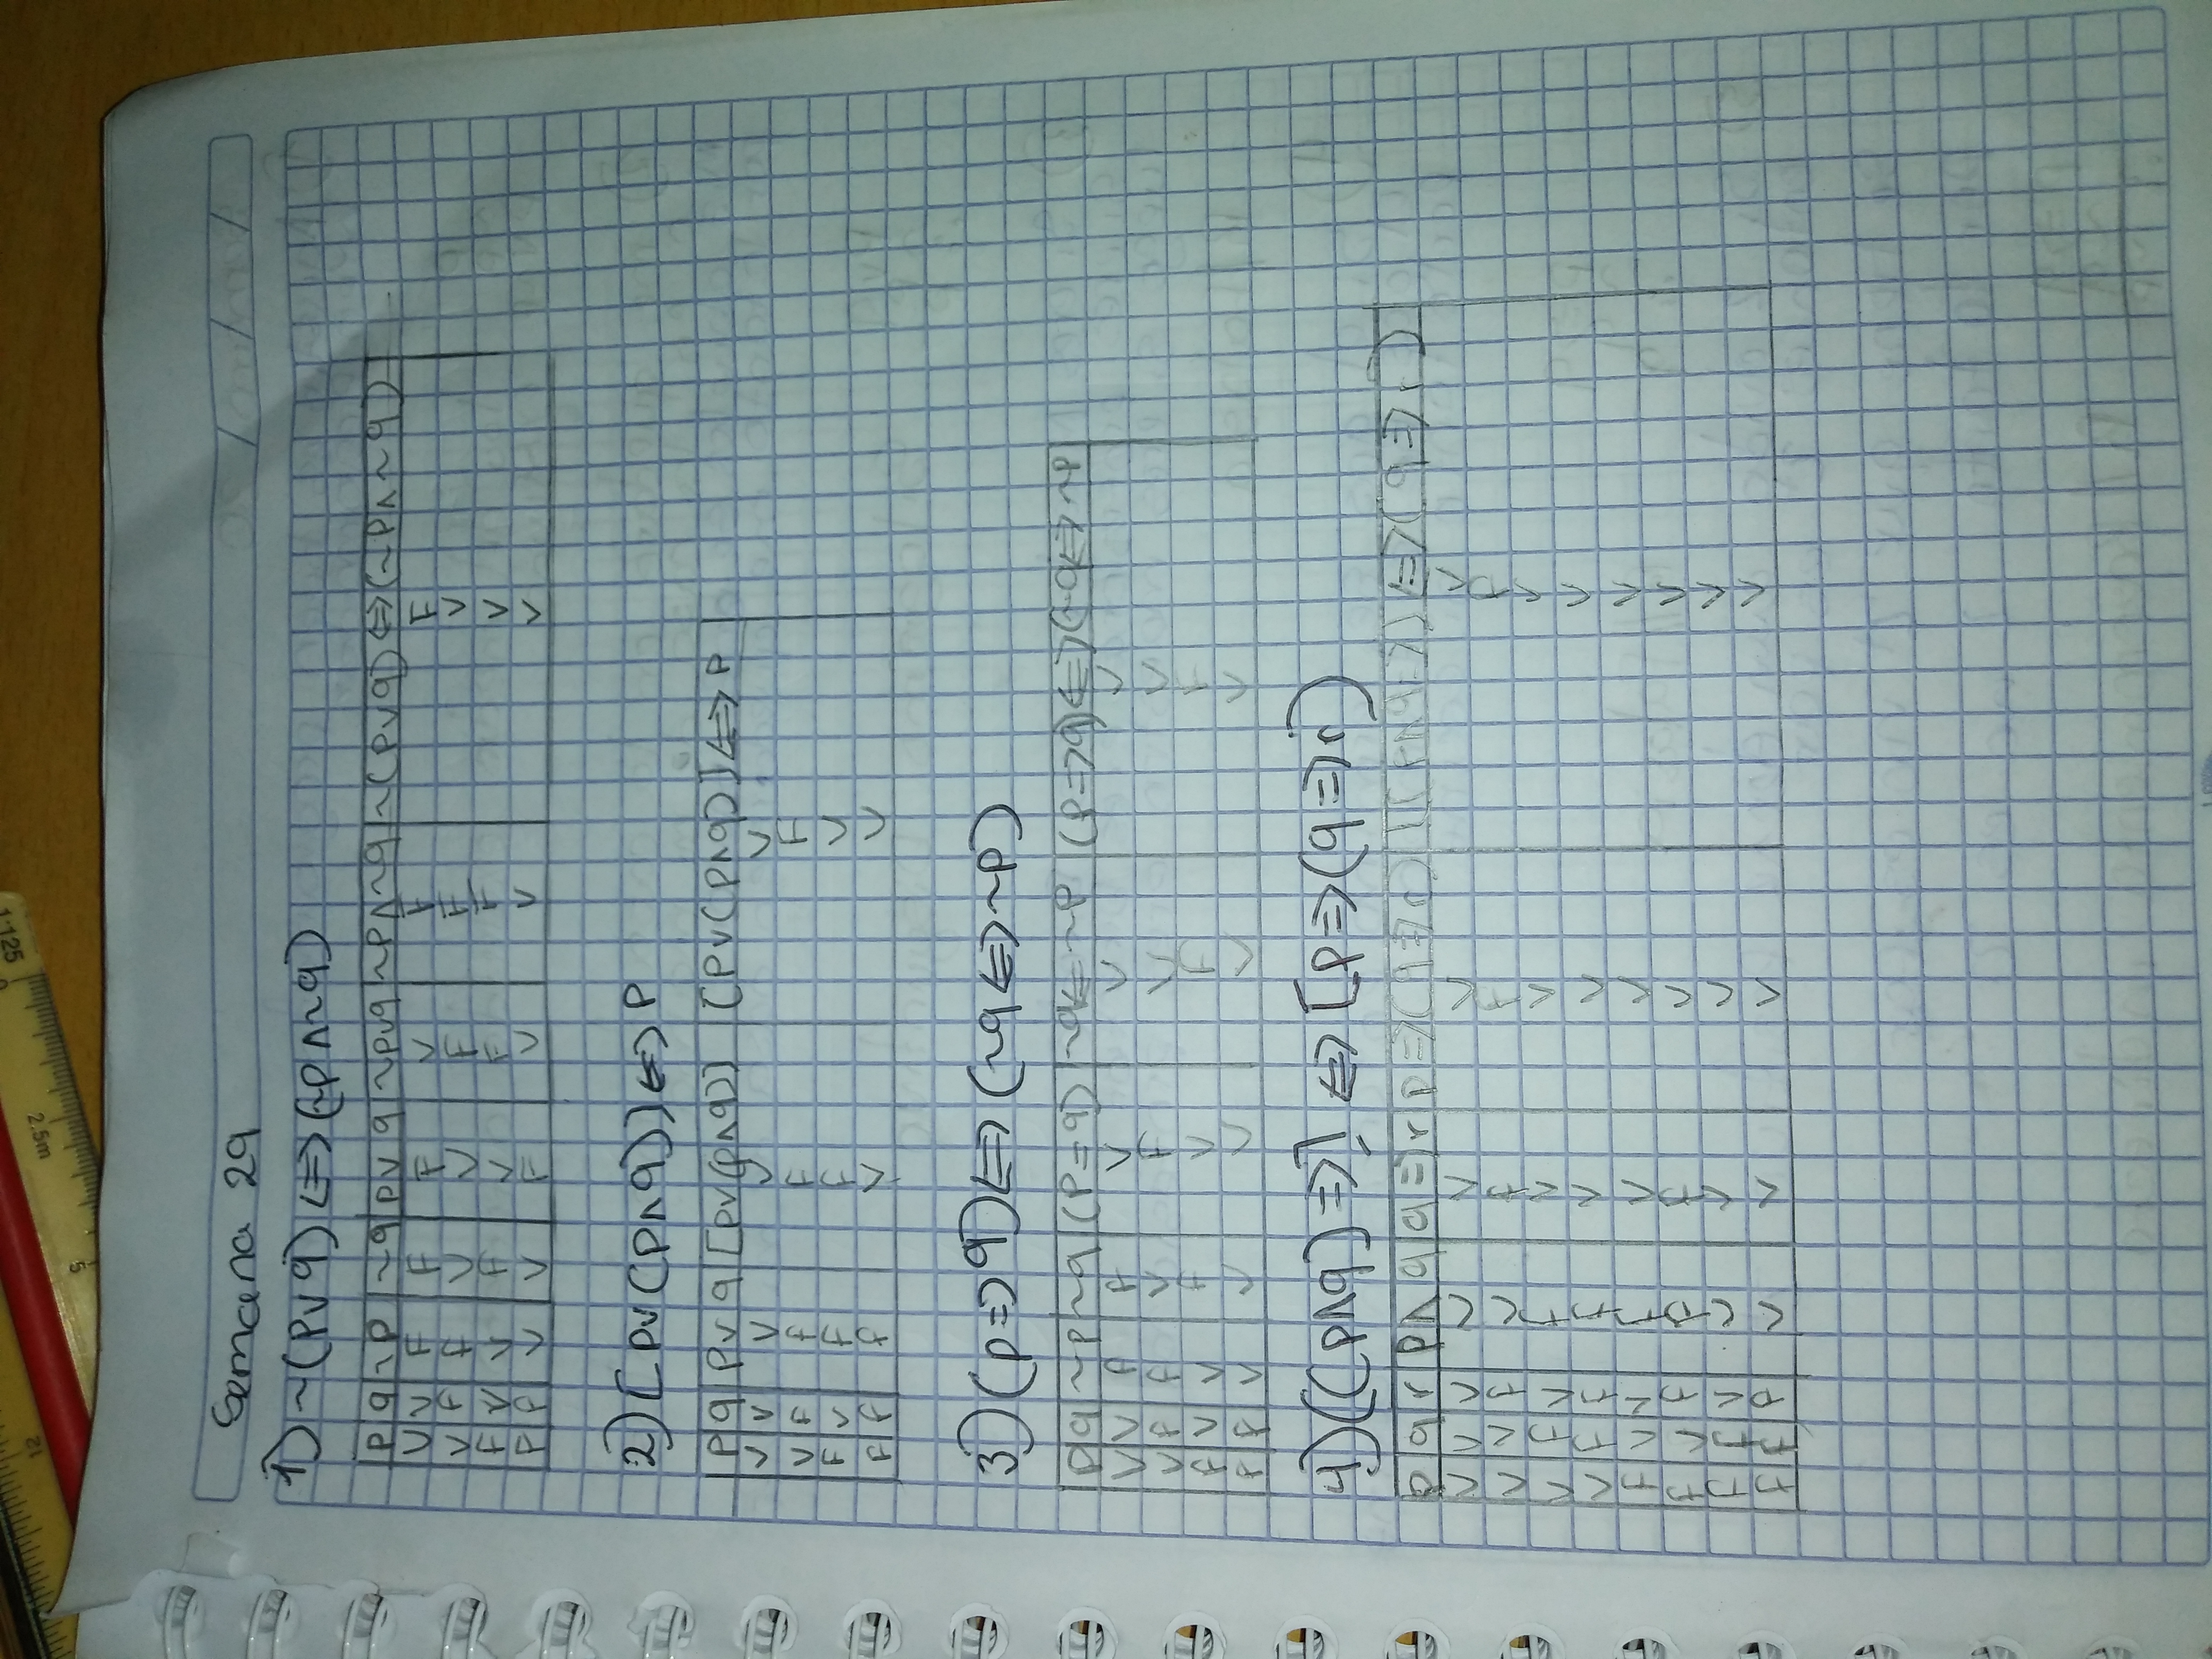 Semana 29
1) ~(pvq) <=> (~p∧~q)
p q ~p ~q pvq ~pvq ~p∧~q ~(pvq) <=> (~p∧~q)
V V F F F V F F
V F F V V F F V
F V V F V F F V
F F V V F V V V
2) [pv(p∧q)] <=> p
p q pvq [pv(p∧q)] [pv(p∧q)] <=> p
V V V V V
V F F F F
F V F F V
F F F V V
3) (p=>q) <=> (~q<=>~p)
p q ~p ~q (p=>q) ~q<=~p (p=>q) <=> (~q<=>~p
V V F F V V V
V F F V F V V
F V V F V F F
F F V V V V V
4) ((p∧q)=>) <=> [p=>(q=>r)
p q r p∧q q=>r p=>(q=>r) [(p∧q=>) <=> (q=>r)
V V V V V V V
V V F V F F F
V F V F V V V
V F F F V V V
F V V F V V V
F V F F F V V
F F V V V V V
F F F V V V V
1125
2.5m
5
21